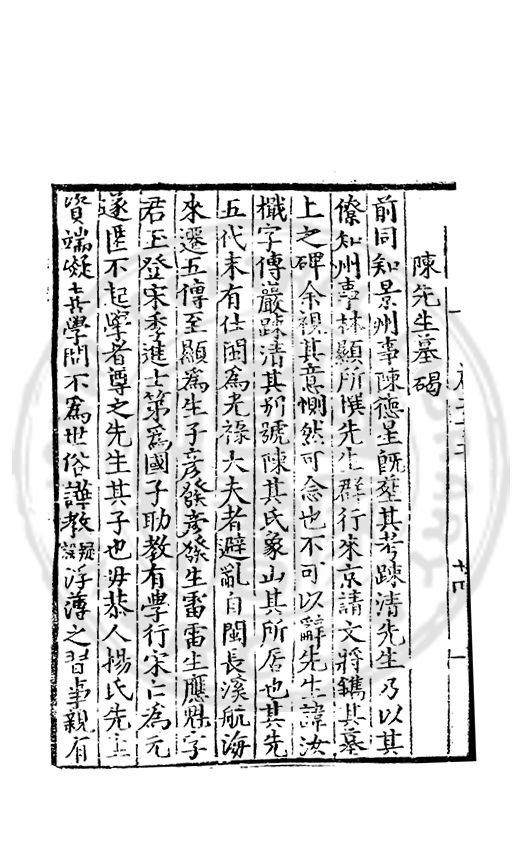 陳先生墓碣
前同知景州事陳德星旣塟其考踈清先生乃以其
僚知州事林顯所撰先生群行來京請文將鐫其墓
上之碑余視其意惻然可念也不可以辭先生諱汝
檝字傳巖踈清其别號陳其氏象山其所居也其先
五代末有仕閩為光祿大夫者避亂自閩長溪航海
來遷五傳至顯爲生子彦發彦發生雷雷生應魁字
君玉登宋季進士第爲國子助教有學行宋亡為元
遂匿不起學者尊之先生其子也毋恭人揚氏先生
資端凝 其學問不爲世俗譁教疑誤浮薄之習事親有